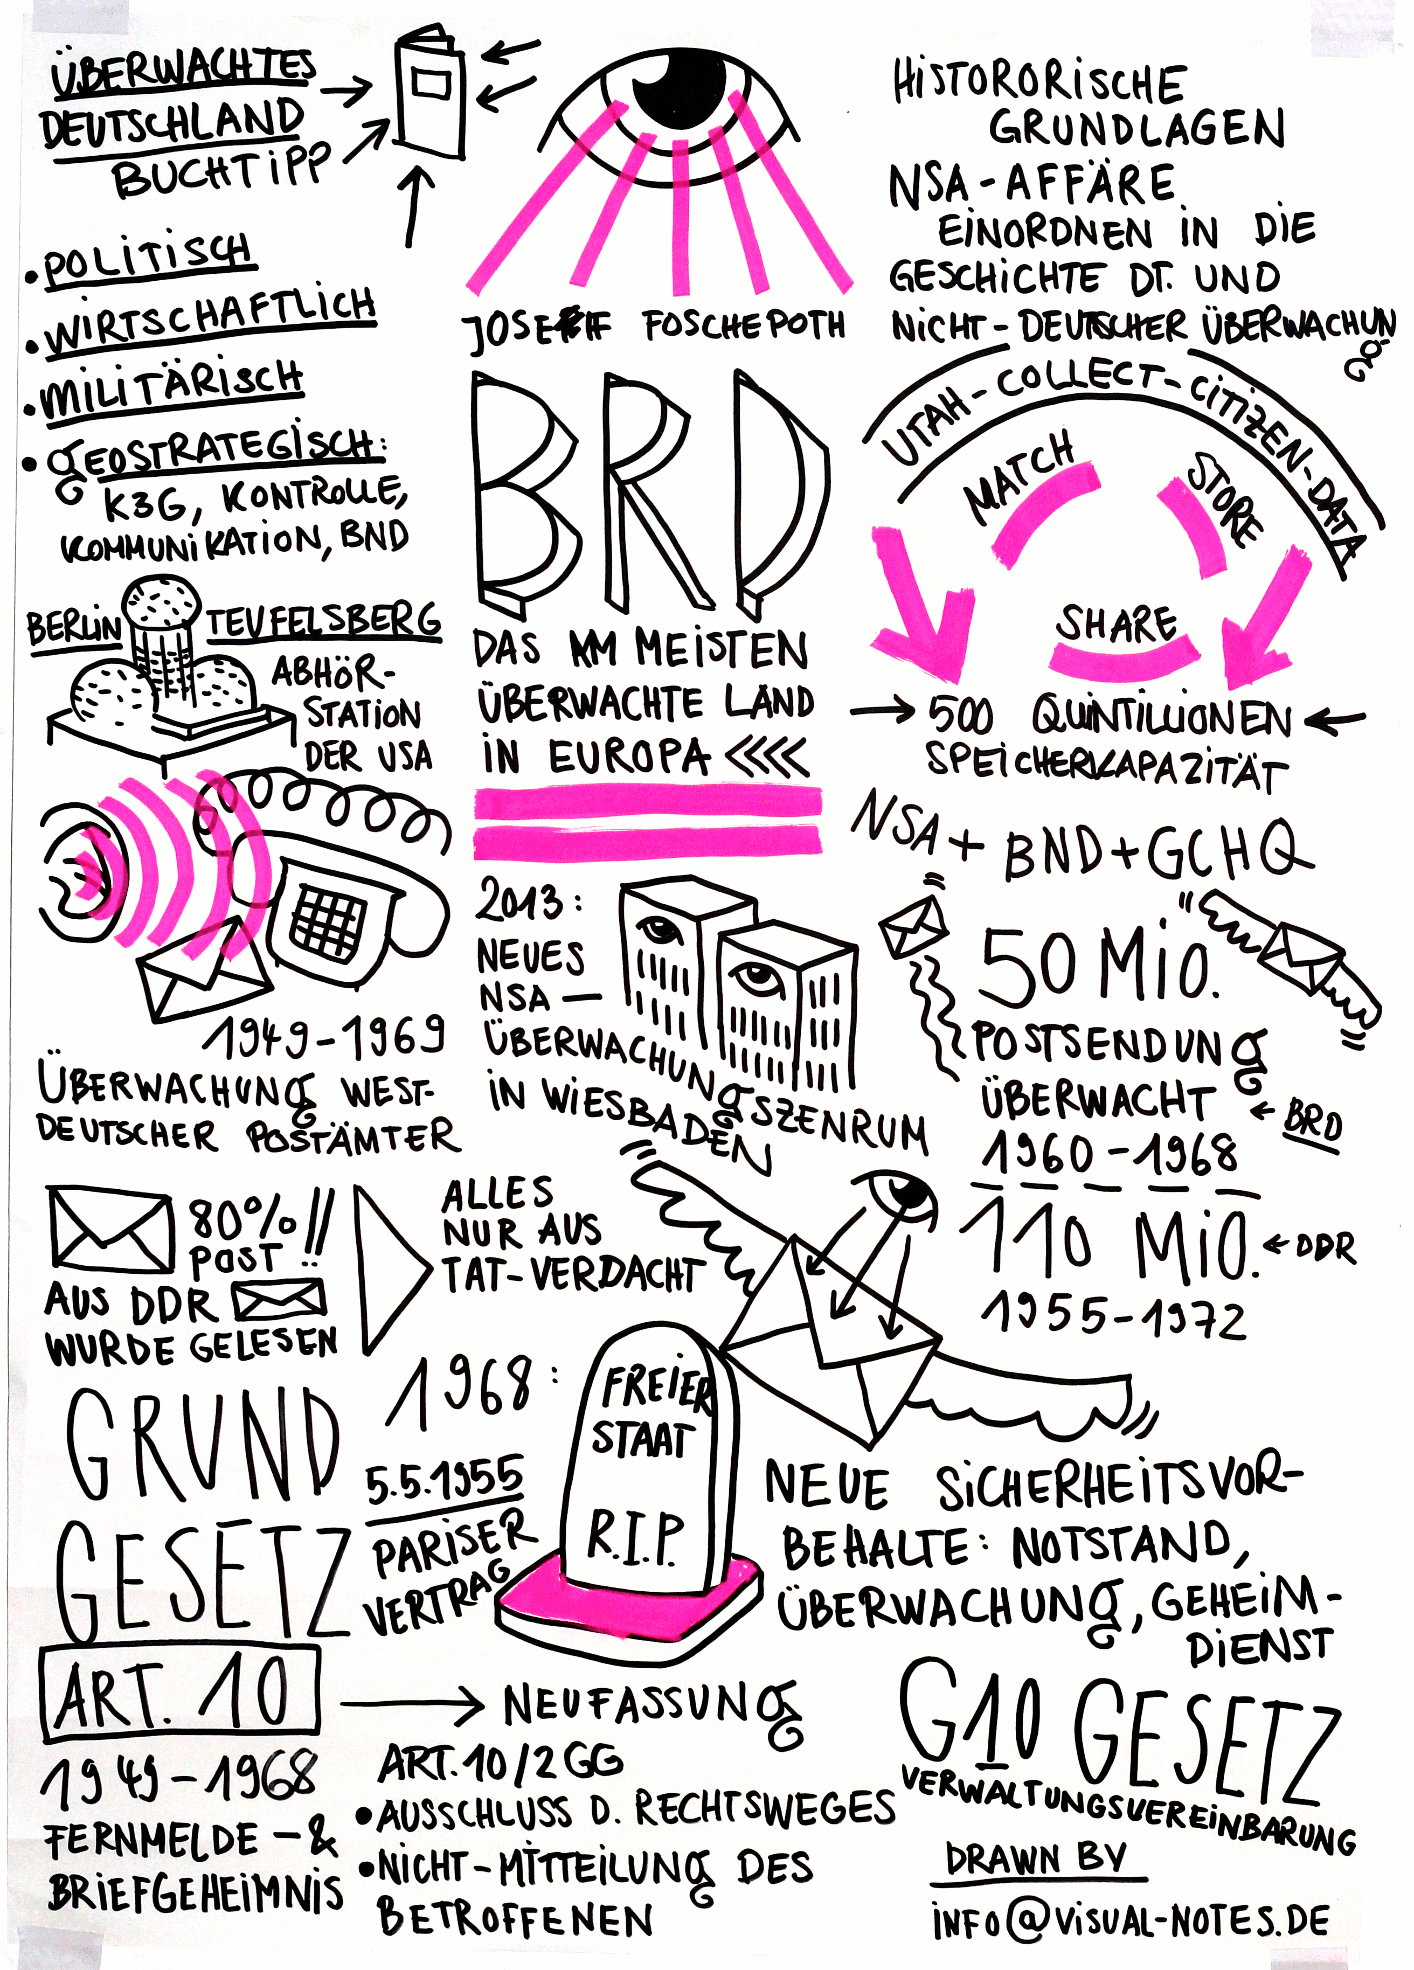 ÜBERWACHTES
DEUTSCHLAND
BUCHTIPP
• POLITISCH
• WIRTSCHAFTLICH
• MILITÄRISCH
• GEOSTRATEGISCH:
K3G, KONTROLLE,
KOMMUNIKATION, BND
BERLIN TEUFELSBERG
ABHÖR-
STATION
DER USA
1949-1969
ÜBERWACHUNG WEST-
DEUTSCHER POSTÄMTER
80% !!
POST
AUS DDR
WURDE GELESEN
ALLES
NUR AUS
TAT-VERDACHT
GRUND
GESETZ
ART. 10
1949-1968
FERNMELDE-&
BRIEFGEHEIMNIS
JOSEF FOSCHEPOTH
BRD
DAS AM MEISTEN
ÜBERWACHTE LAND
IN EUROPA <<<<
2013:
NEUES
NSA-
ÜBERWACHUNGSZENRUM
IN WIESBADEN
1968:
5.5.1955
PARISER
VERTRAG
FREIER
STAAT
R.I.P.
NEUFASSUNG
ART. 10/2 GG
• AUSSCHLUSS D. RECHTSWEGES
• NICHT-MITTEILUNG DES
BETROFFENEN
HISTORORISCHE
GRUNDLAGEN
NSA-AFFÄRE
EINORDNEN IN DIE
GESCHICHTE DT. UND
NICHT-DEUTSCHER ÜBERWACHUNG
UTAH-COLLECT-CITIZEN-DATA
MATCH
STORE
SHARE
500 QUINTILLIONEN
SPEICHERKAPAZITÄT
NSA + BND + GCHQ
50 MIO.
POSTSENDUNG
ÜBERWACHT
← BRD
1960-1968
110 MIO. ← DDR
1955-1972
NEUE SICHERHEITSVOR-
BEHALTE: NOTSTAND,
ÜBERWACHUNG, GEHEIM-
DIENST
G10 GESETZ
VERWALTUNGSVEREINBARUNG
DRAWN BY
INFO@VISUAL-NOTES.DE